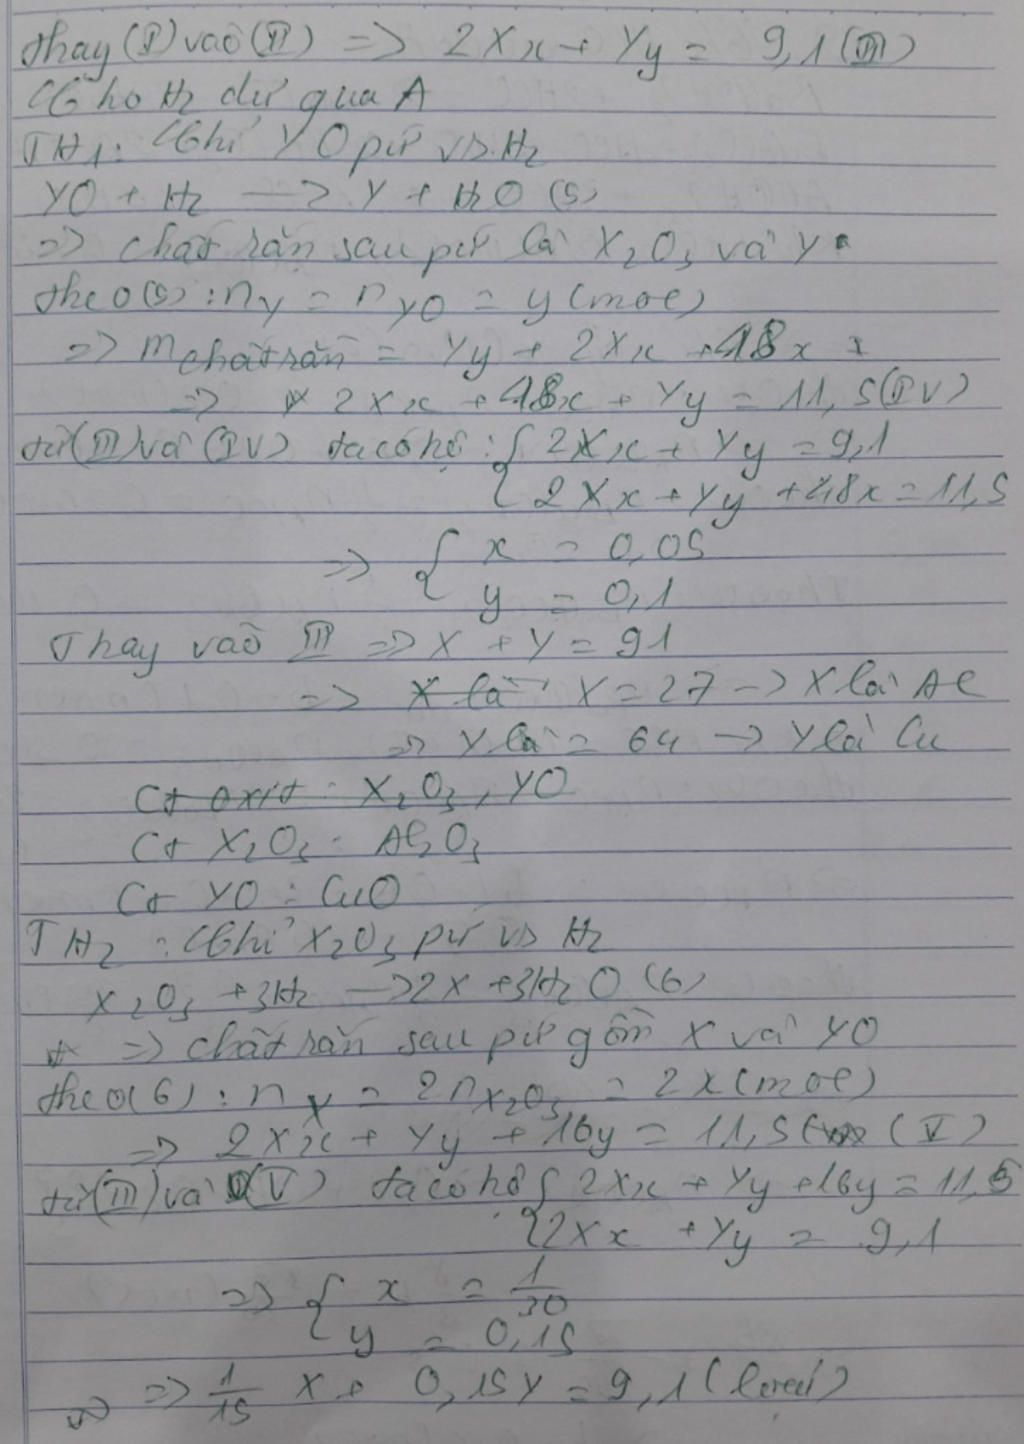 thay (I) vào (II) => 2Xx + Yy = 9,1 (III)
Cho H2 dư qua A
TH1: Chỉ YO pư vs H2
YO + H2 -> Y + H2O (5)
=> chất rắn sau pư là X2O3 và Y
theo (5): nY = nYO = y (mol)
=> mchất rắn = Yy + 2Xx + 48x
=> 2Xx + 48x + Yy = 11,5 (IV)
từ (III) và (IV) ta có hệ: { 2Xx + Yy = 9,1
{ 2Xx + Yy + 48x = 11,5
=> { x = 0,05
{ y = 0,1
Thay vào III => X + Y = 91
=> X là X = 27 -> X là Al
=> Y là = 64 -> Y là Cu
Ct oxit: X2O3, YO
Ct X2O3: Al2O3
Ct YO: CuO
TH2: Chỉ X2O3 pư vs H2
X2O3 + 3H2 -> 2X + 3H2O (6)
=> chất rắn sau pư gồm X và YO
theo (6): nX = 2nX2O3 = 2x (mol)
=> 2Xx + Yy + 16y = 11,5 (V)
từ (III) và (V) ta có hệ { 2Xx + Yy + 16y = 11,5
{ 2Xx + Yy = 9,1
=> { x = 1/30
{ y = 0,15
=> 1/15 X + 0,15Y = 9,1 (loại)